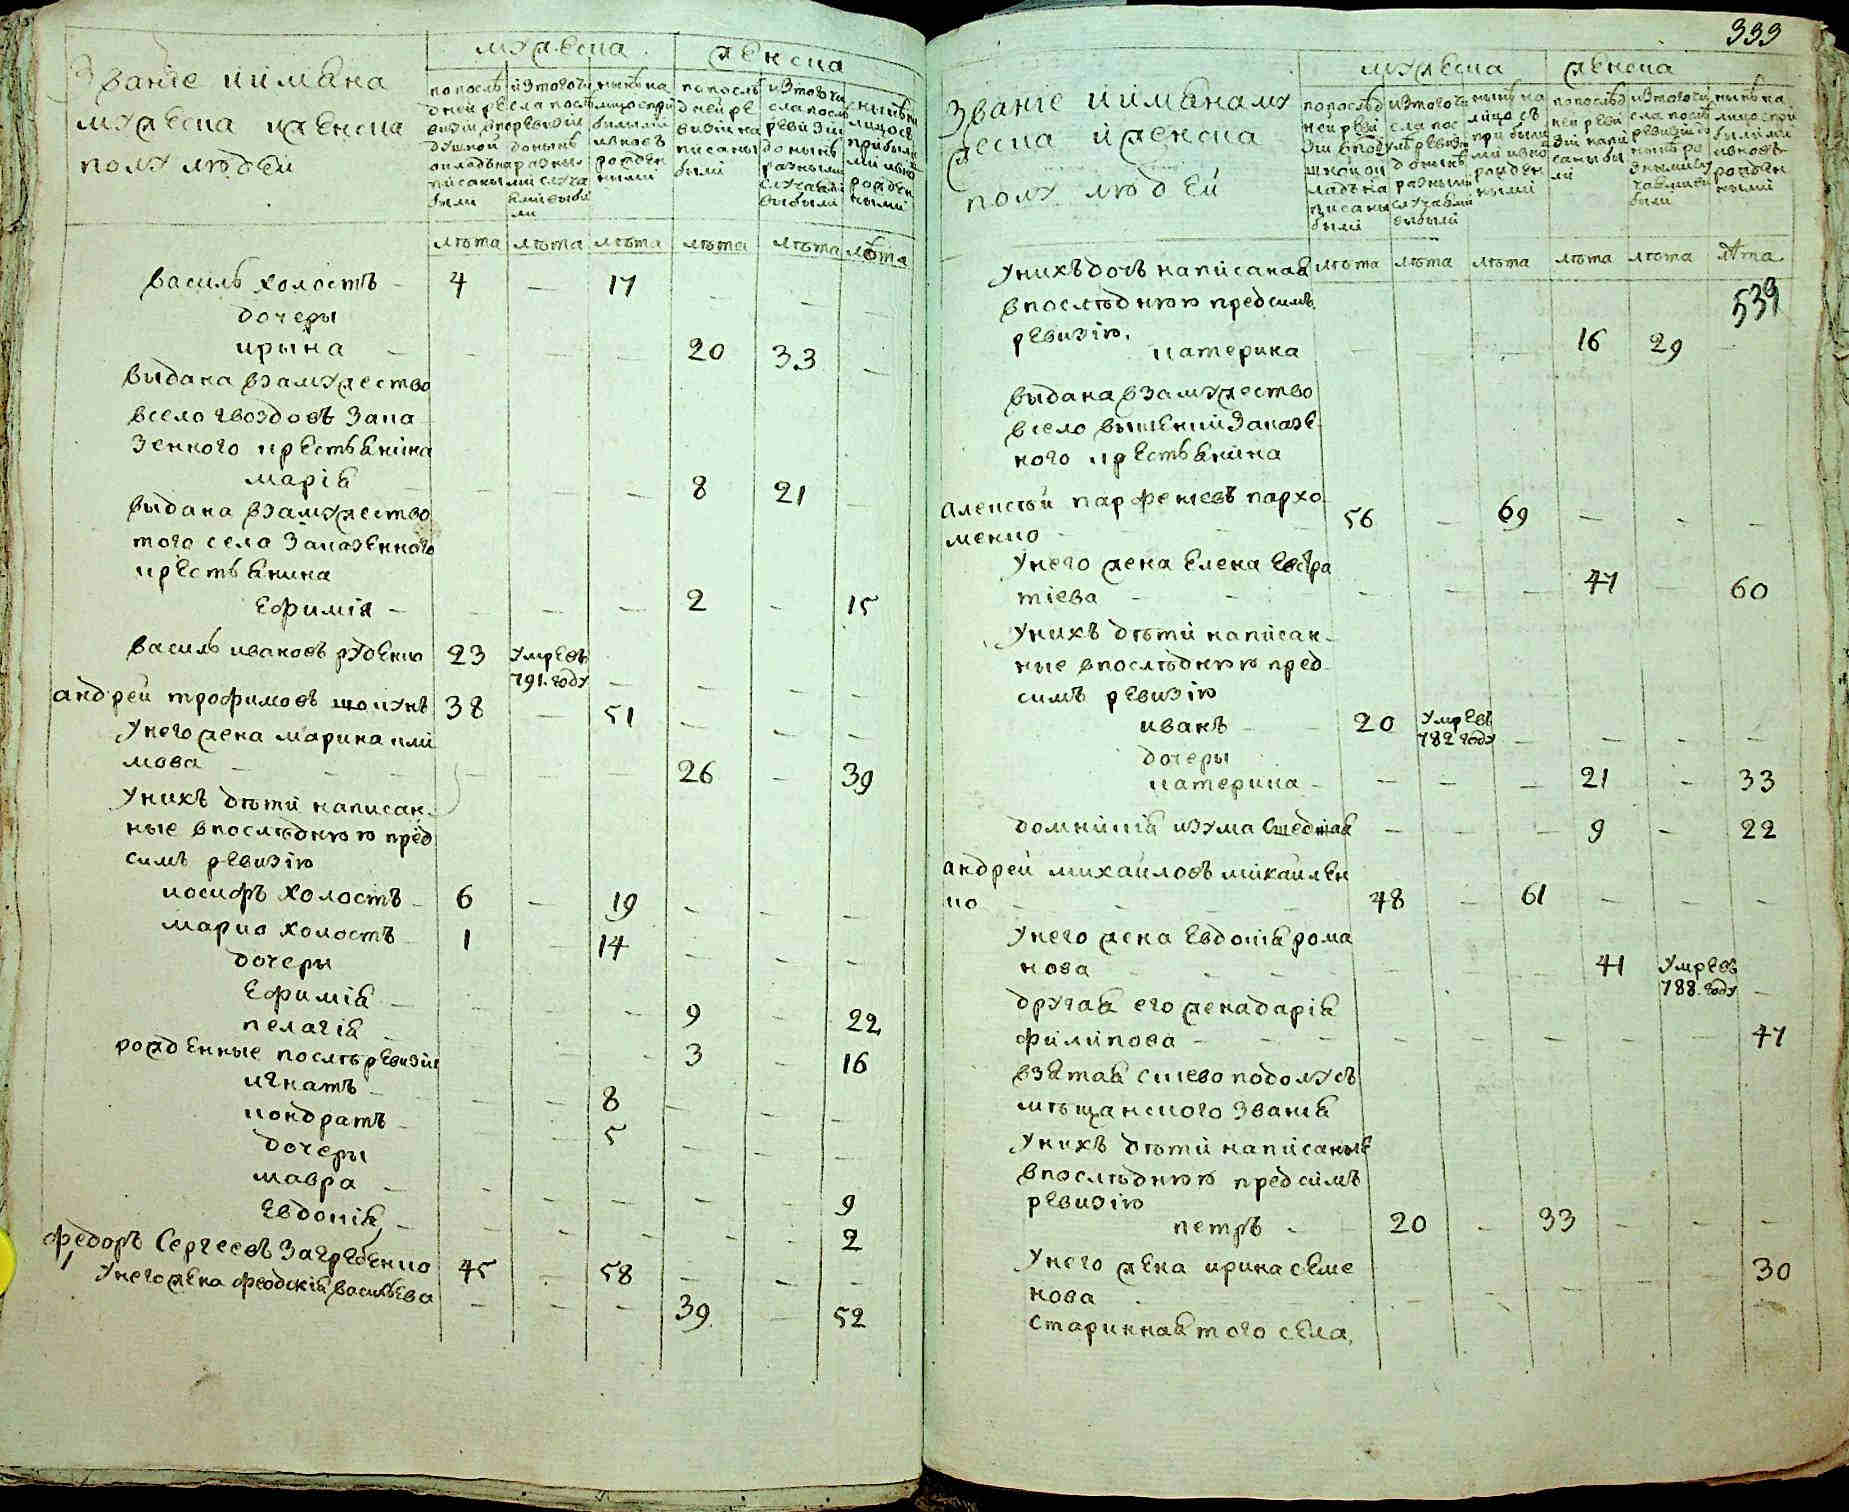 Званіе и имѧна
мужеска и женска
полу людей
мужеска
женска
по послѣ
дней ре
визіи в по
душной
окладъ на
писаны
были
изтого чи
сла послѣ
ревизіи
донынѣ
разны
ми случа
ями выбы
ли
нынѣ на
лицо с при
былыми
и вновь
рожден
ными
по послѣ
дней ре
визіи на
писаны
были
изтого чи
сла послѣ
ревизіи
донынѣ
разными
случаями
выбыли
нынѣ на
лицо съ
прибылы
ми и вно
рожден
ными
лѣта лѣта лѣта лѣта лѣта лѣта
василь холостъ - 4 — 17 — —
дочеры
ирына — — — — 20 33 —
выдана взамужество
всело гвоздовъ зака
зенного крестьянина
марія — — — 8 21 —
выдана взамужество
того села заказенного
крестьянина
Ефимія — — — — 2 - 15
василь ивановъ руденко 23 умревъ
791. году — — — —
андрей трофимовъ щокунъ 38 — 51 — — —
унего жена марина кли
мова — — — — — — 26 — 39
унихъ дѣти написан-
ные впослѣднюю пред
симъ ревизію
иосифъ холостъ - 6 — 19 - - —
марко холостъ - 1 — 14 — — —
дочеры
Ефимія — — — — 9 - 22
пелагія — — — — 3 - 16
рожденные послѣ ревизіи
игнатъ — — — 8 — — —
кондратъ — — — 5 — — —
дочеры
мавра — - — — — - 9
Евдокія — — — — - - 2
федоръ Сергеевъ Загребенко 45 - 58 — — —
унего жена феодосія васильева — — — 39 — 52
333
Званіе и имѧна му
жеска и женска
полу людей
мужеска
женска
по послѣд
ней реви
зіи в поду
шной ок
ладъ на
писаны
были
изтого чи
сла пос
лѣ ревиз
донынѣ
разными
случаями
выбыли
нынѣ на
лицо съ
прибылы
ми и вно
рожден
ными
по послѣд
ней реви
зіи напи
саны бы
ли
изтого чи
сла послѣ
ревизіи до
нынѣ ра
зными слу
чаями вы
были
нынѣ на
лицо с при
былыми
и вновь
рожден
ными
лѣта лѣта лѣта лѣта лѣта лѣта
унихъ дочь написаная
впослѣднюю предсимъ 539
ревизію.
катерина — — — 16 29
выдана взамужество
всело вышеній заказе-
ного крестьянина
алексѣй парфеніевъ пархо
менко — 56 — 69 — - —
унего жена Елена Евстра
тіева — - — — — 47 — 60
унихъ дѣти написан-
ные впослѣднюю пред-
симъ ревизію
иванъ — 20 умревъ
782 году — — - —
дочеры
катерина - — — — 21 - 33
домникія изума сшедшая — - — 9 - 22
андрей михайловъ михайлен
ко — — — 48 — 61 — — —
унего жена Евдокія рома
нова — — — — — — 41 умревъ
788. году —
другая его жена дарія
филипова — — — — — — — — 47
взятая скіево подолусъ
мѣщанского званія
унихъ дѣти написаные
впослѣднюю предсимъ
ревизію
петръ — — 20 - 33 — — —
унего жена ирина семе
нова — — — — — — 30
старинная того села,